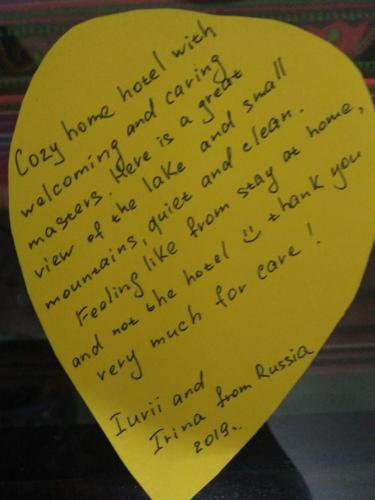 Cozy home hotel with
welcoming and caring
masters. Here is a great
view of the lake and small
mountains, quiet and clean.
Feeling like from stay at home,
and not the hotel :) thank you
very much for care!
Iurii and
Irina from Russia
2019.